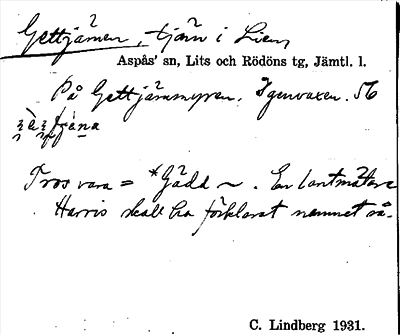 Gettjärnen, tjärn i Lien,
Aspås' sn, Lits och Rödöns tg, Jämtl. l.
På Gettjärnmyren. Igenvuxen. 56
Tros vara = *Gädd ~. En lantmätare
Harris skall ha förklarat namnet så.
C. Lindberg 1931.